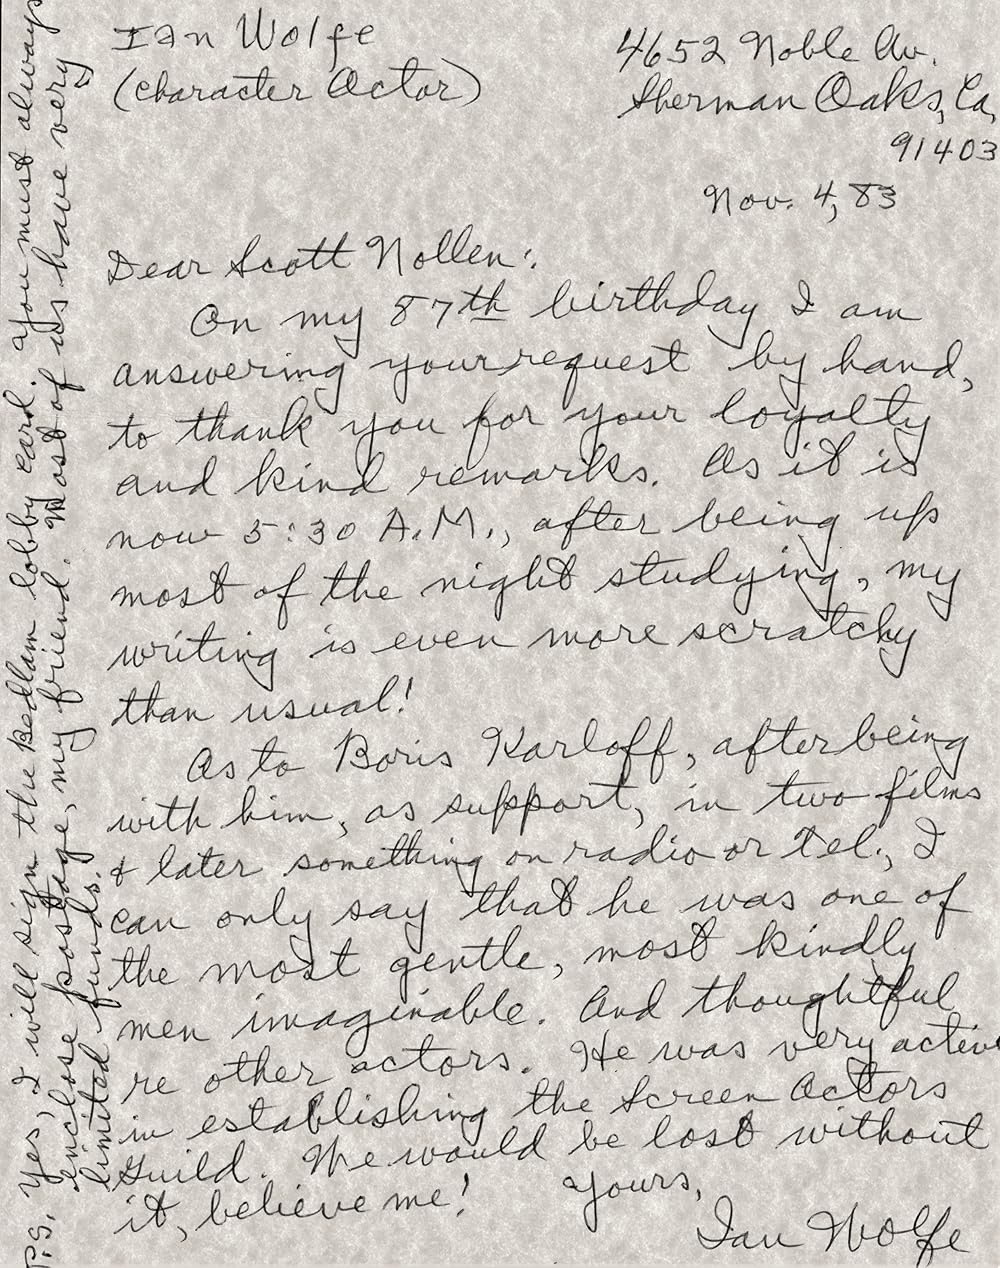 Ian Wolfe
(character Actor)
4652 Noble Av.
Sherman Oaks, Ca,
91403
Nov. 4, 83
Dear Scott Nollen:
On my 87th birthday I am
answering your request by hand,
to thank you for your loyalty
and kind remarks. As it is
now 5:30 A.M., after being up
most of the night studying, my
writing is even more scratchy
than usual!
As to Boris Karloff, after being
with him, as support, in two films
& later something on radio or tel., I
can only say that he was one of
the most gentle, most kindly
men imaginable. And thoughtful
re other actors. He was very active
in establishing the Screen Actors
Guild. We would be lost without
it, believe me!
Yours,
Ian Wolfe
P.S. Yes, I will sign the Bedlam lobby card. You must always
enclose postage, my friend. Most of us have very
limited funds.